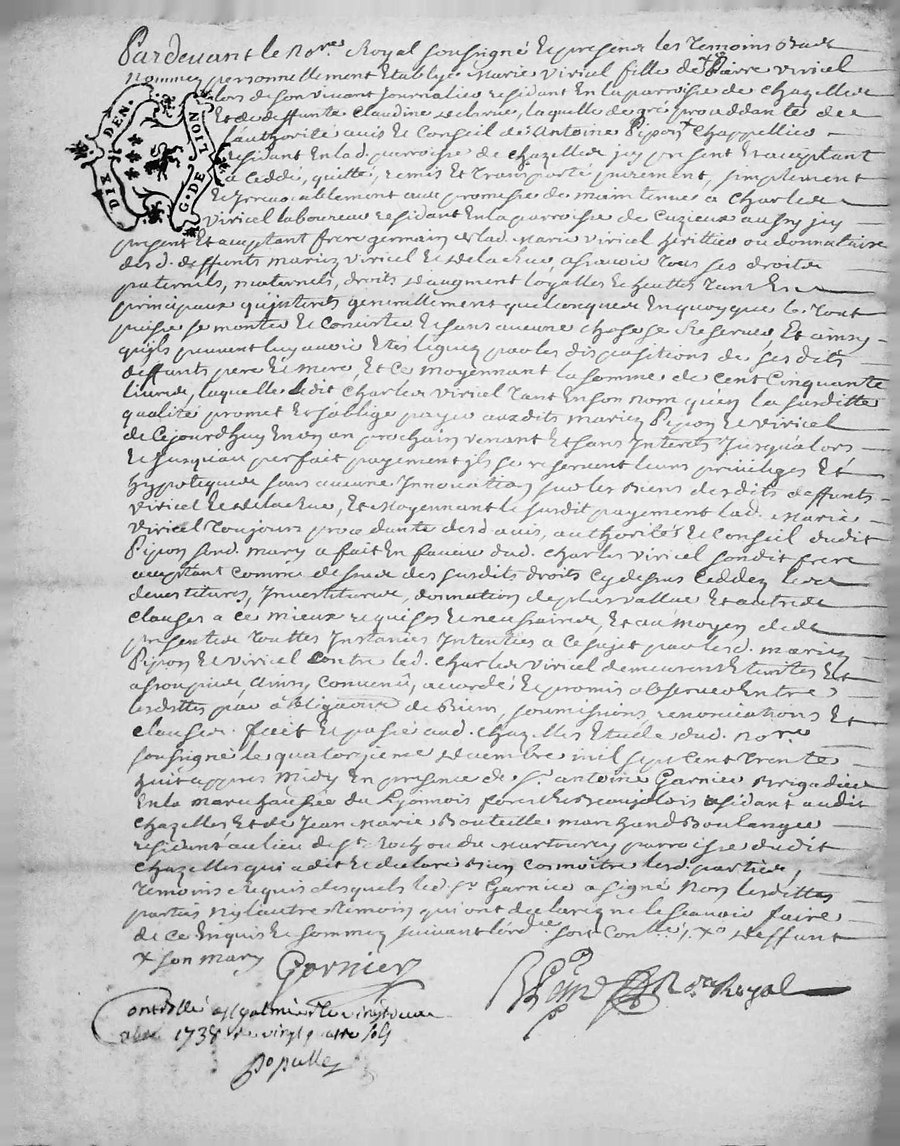 Pardevant le No.re Royal soussigné Et present les Temoins Bas
Nommez personnellement Etablye Marie Viricel fille de x Pierre Viricel
lors de son vivant Journalier residant En la parroisse de Chazelles
Et de deffunte Claudine Delarue, laquelle de gré proceddante de
l'authorité avis Et Conseil de Antoine Pipon x Chappellier
residant En lad. parroisse de Chazelles jcy present Et acceptant
a Ceddé, quitté, remis Et Transporté purement, simplement
Et Irrevocablement aux promesses de maintenue a Charles
Viricel laboureur residant En la parroisse de Cuzieux aussy jcy
present Et acceptant frere germain de lad. Marie Viricel heritier ou donnataire
desd. deffunts mariez Viricel Et Delarue, a sçavoir Tous ses droits
paternels, maternels, droits d'augment loyalles Echeuttes Tant En
principaux qu'jnterets generallement quelconques En quoy que le Tout
puisse se monter Et Consister Et sans aucune chose se Reserver, Et ainsy
qu'ils peuvent luy avoir Etés leguez par les dispositions de sesdits
deffunts pere Et mere, Et Ce moyennant la somme de Cent Cinquante
livres, laquelle ledit Charles Viricel Tant En son nom qu'en la susditte
qualité promet Et s'oblige payer auxdits mariez Pipon Et Viricel
de Cejourdhuy En un an prochain venant Et sans Interets Jusqu'alors
Et Jusqu'au perfait payement jls se reservent leurs privileges Et
hypoteques sans aucune Innovation sur les Biens desdits deffunts
Viricel Et Delarue, Et Moyennant le susdit payement lad. Marie
Viricel Toujours proceddante desd. avis, authorité Et Conseil dudit
Pipon sond. mary a fait En faveur dud. Charles Viricel sondit frere
acceptant Comme dessus des susdits droits Cy dessus Ceddez
devestitures, Investitures, donnation de plus vallue Et autres
Clauses a ce mieux requises Et necessaires, Et au moyen des
presentes Touttes Instances Intentées a ce sujet par lesd. mariez
Pipon Et Viricel Contre led. Charles Viricel demeurent Eteintes Et
assoupies Ainsy Convenu, accordé, Et promis observer Entre
lesdittes par obligation de Biens, soumissions renonciations Et
Clauses. fait Et passé aud. Chazelles Etude dud. No.re
soussigné le quatorzieme decembre mil sept cent trente
huit appres Midy En presence de Sr. antoine Garnier Brigadier
En la marechaussée du Lyonnois forets Et Beaujolois residant audit
Chazelles Et de Jean Marie Bouteille marchand Boulanger
residant au lieu de St. Roch ou du Martouray parroisse dudit
Chazelles qui a dit Et declaré Bien Connoitre lesd. parties,
Temoins requis desquels led. Sr. Garnier a signé Non lesdittes
parties ny l'autre Temoin qui ont declaré ne le sçavoir faire
de ce Enquis Et sommez suivant l'ord.ce soit Con.llé, x deffunt
x son mary
Garnier
No.re Royal
Controllé a St galmier le vingt
1738 vingt quatre sols
Populle
DIX DEN.
G. DE LION